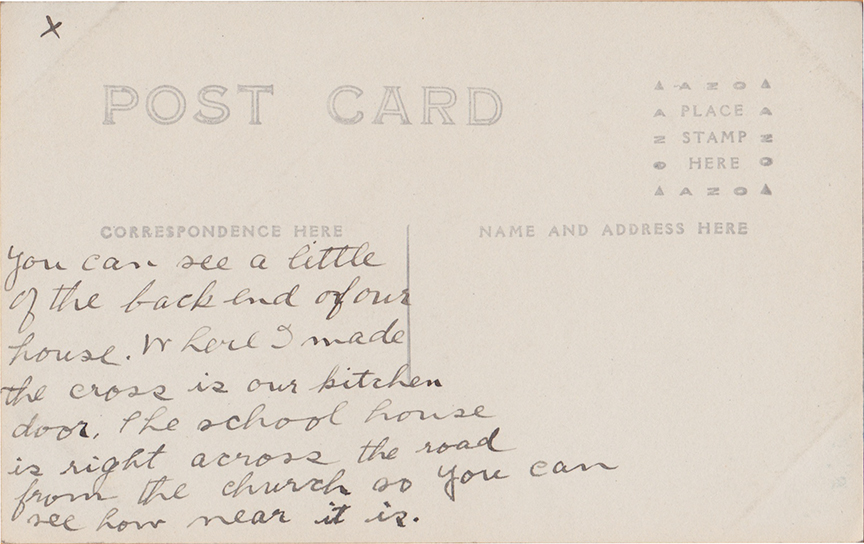 x
POST CARD
▲ AZO ▲
A PLACE A
Z STAMP Z
O HERE O
▲ AZO ▲
CORRESPONDENCE HERE
NAME AND ADDRESS HERE
You can see a little
of the back end of our
house. Where I made
the cross is our kitchen
door. The school house
is right across the road
from the church so you can
see how near it is.